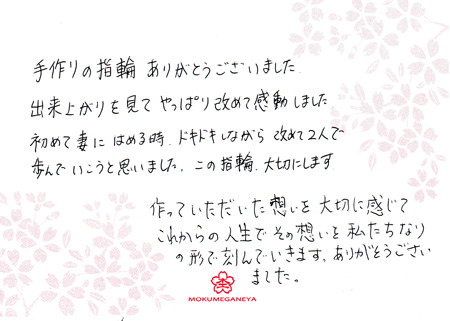 手作りの指輪 ありがとうございました.
出来上がりを見て やっぱり改めて感動しました
初めて妻に はめる時、ドキドキしながら 改めて2人で
歩んでいこうと思いました。この指輪、大切にします
作っていただいた想いを 大切に感じて
これからの人生で その想いを 私たちなり
の形で刻んでいきます。ありがとうござい
ました。
MOKUMEGANEYA